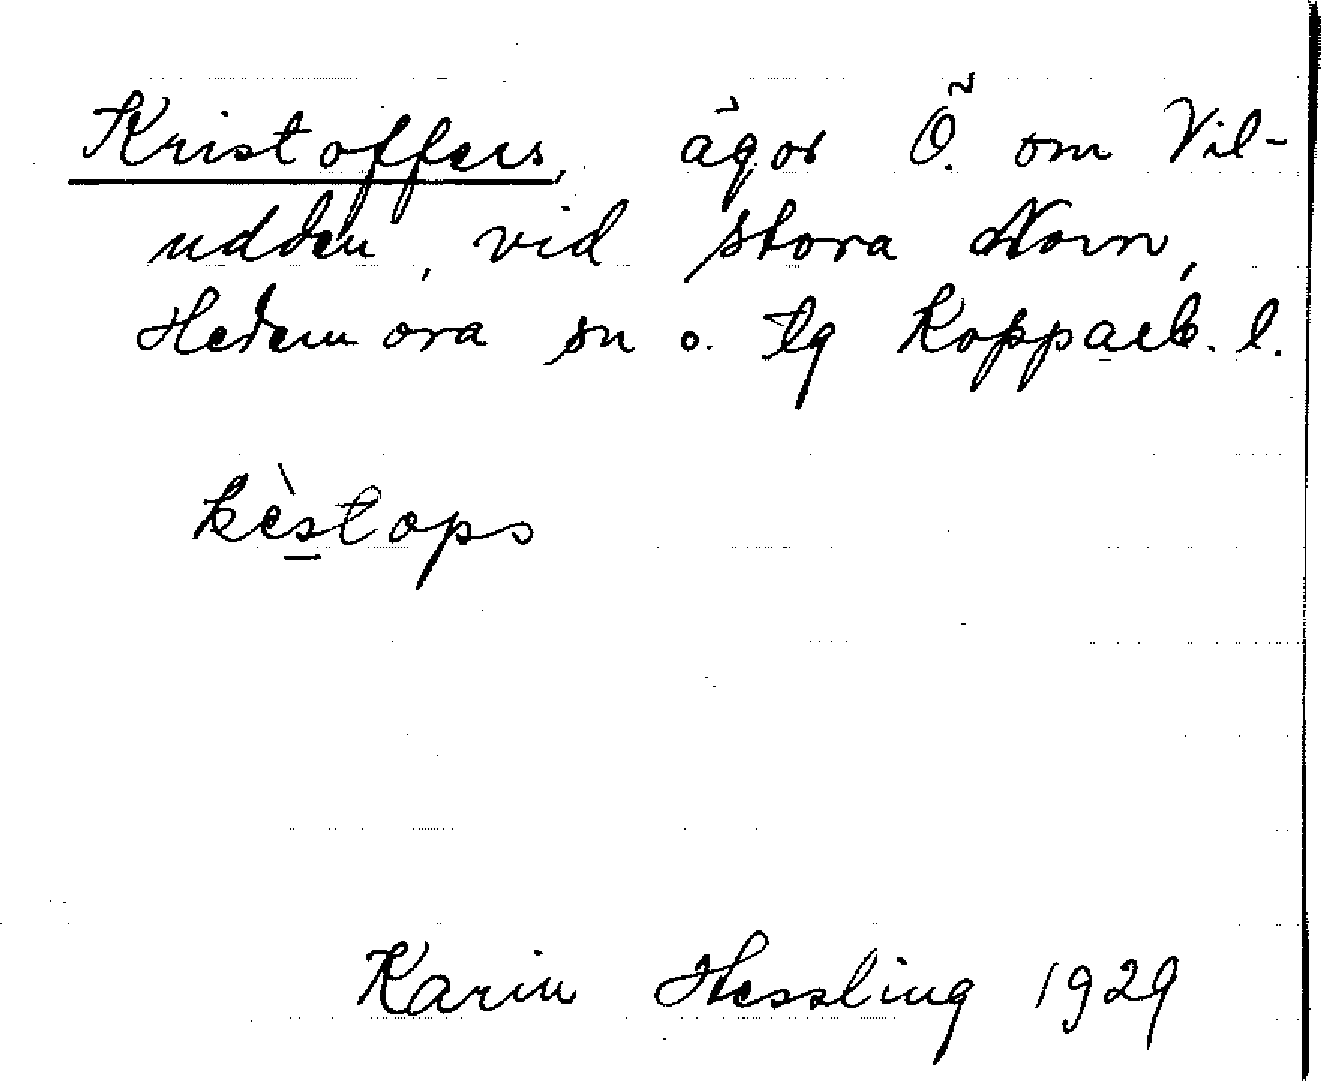 Kristoffers, ägor Ö. om Vil-
udden, vid Stora Norn,
Hedemora sn o. tg Kopparb. l.
kèstops
Karin Hessling 1929